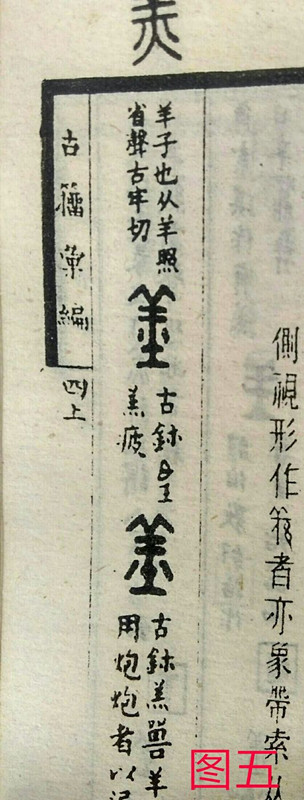 側視形作羌者亦象帶索从
羊子也从羊照
省聲古牢切
古鉨
羔疲
古鉨羔兽羊
用炮炮者以
古籀彙編
四上
图五